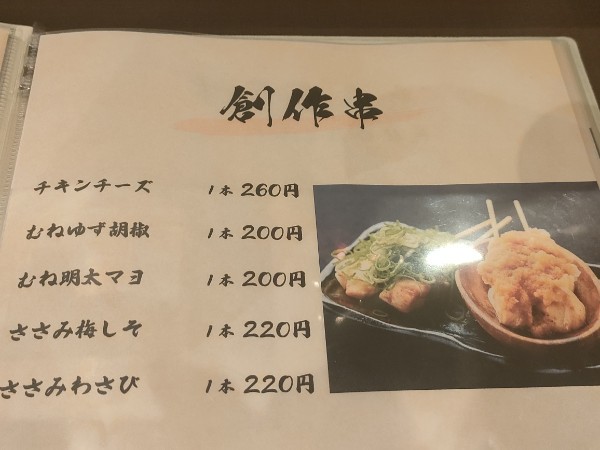 創作串
チキンチーズ 1本 260円
むねゆず胡椒 1本 200円
むね明太マヨ 1本 200円
ささみ梅しそ 1本 220円
ささみわさび 1本 220円